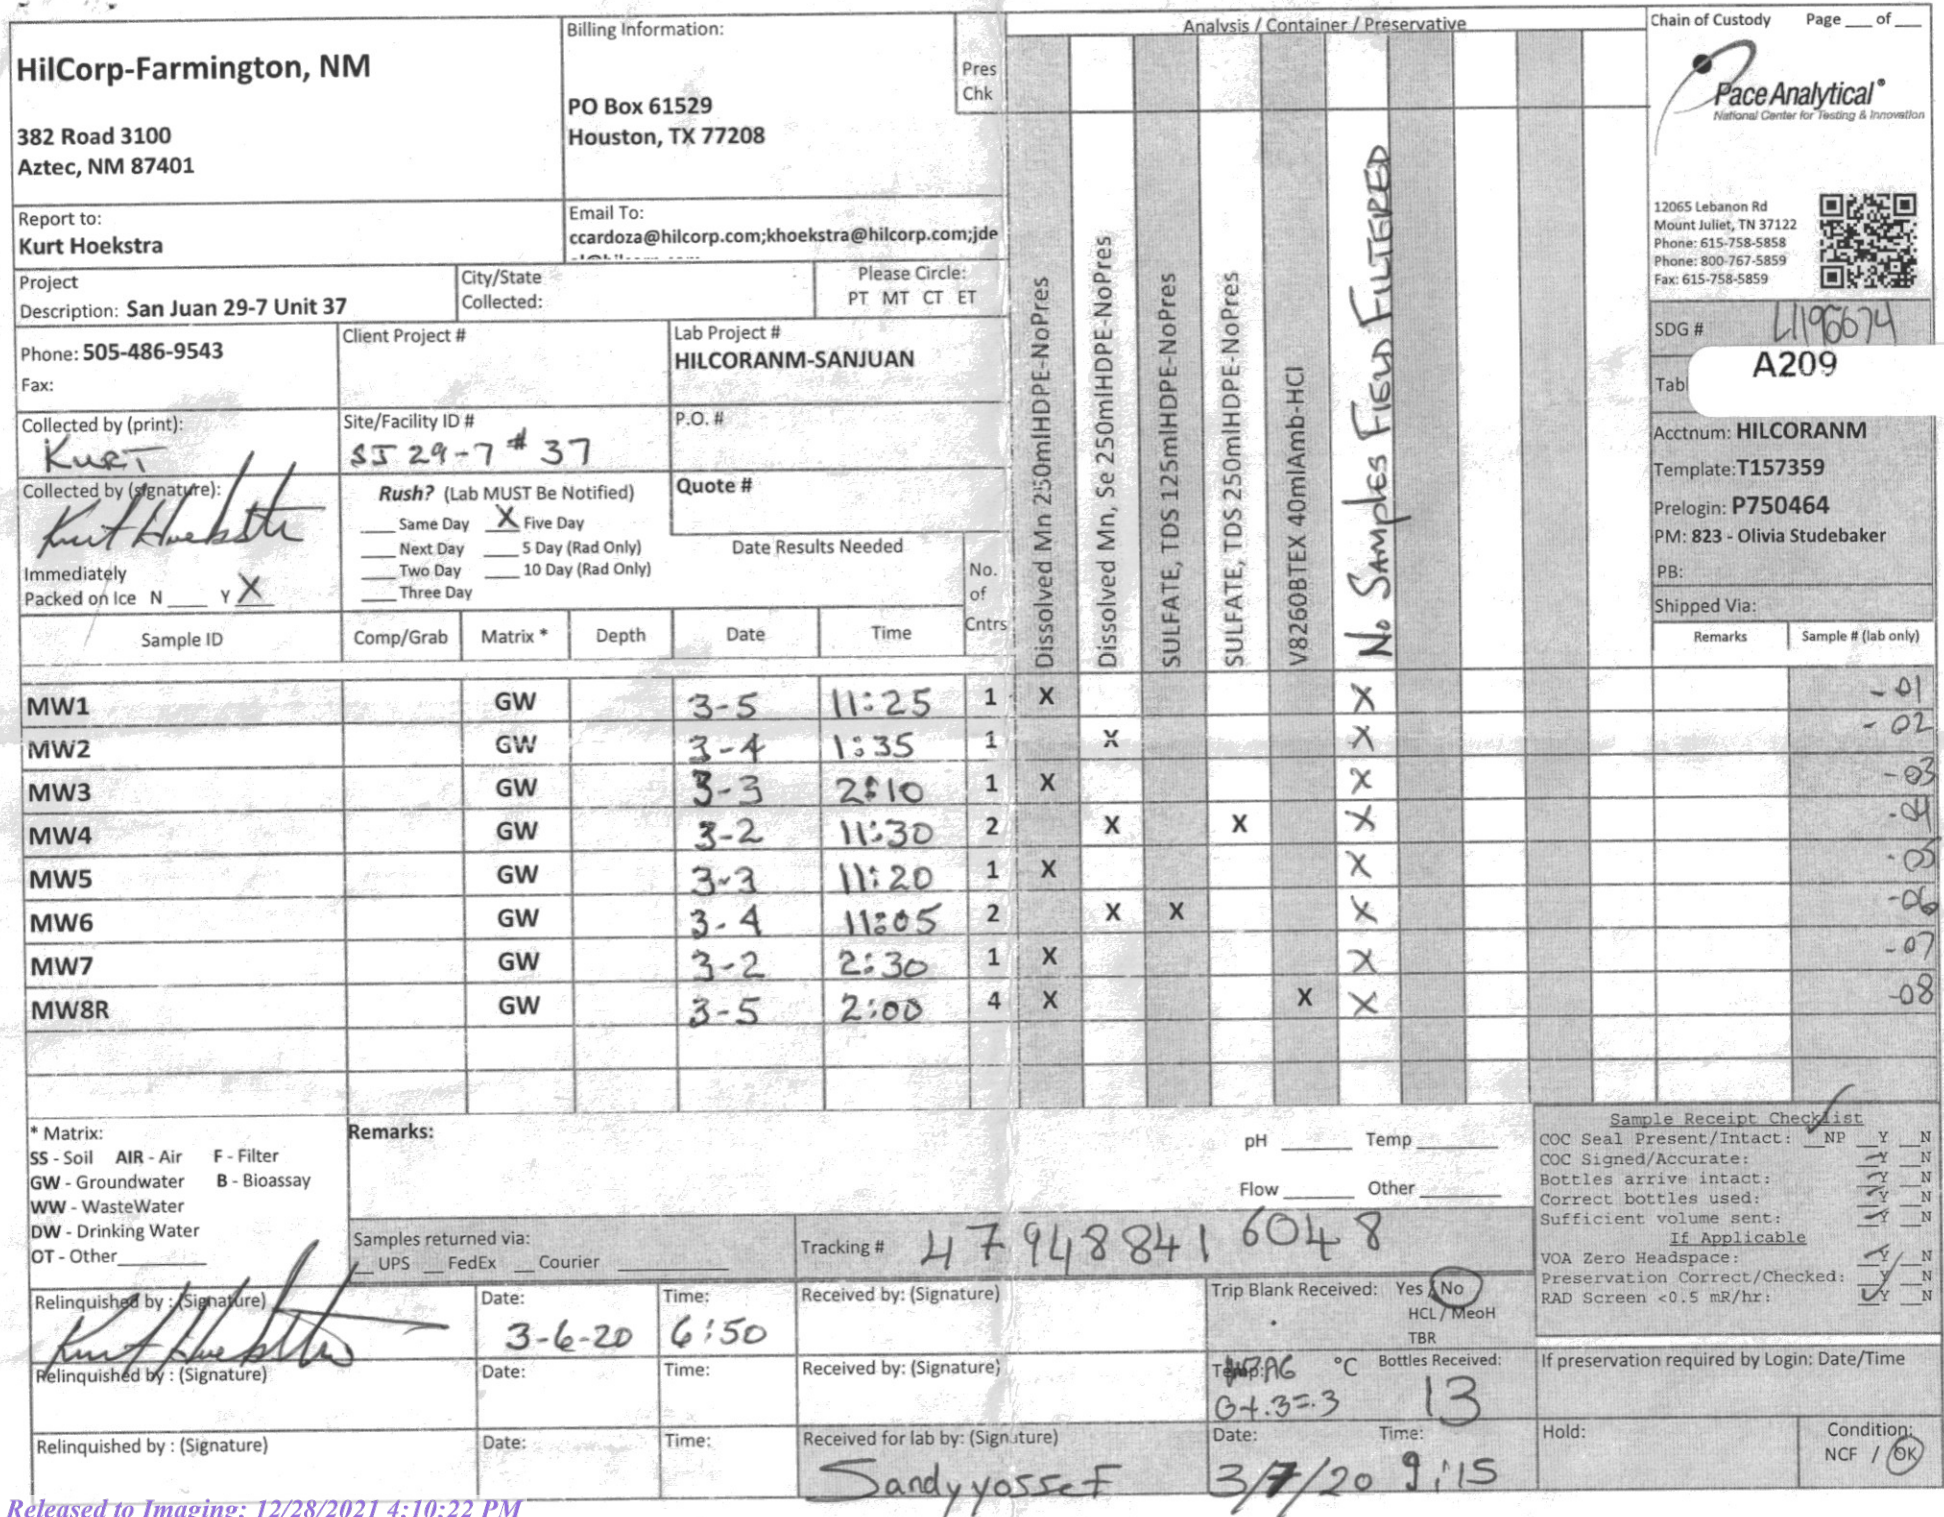 HilCorp-Farmington, NM
382 Road 3100
Aztec, NM 87401
Billing Information:
PO Box 61529
Houston, TX 77208
Pres
Chk
Analysis / Container / Preservative
Chain of Custody Page ___ of ___
Pace Analytical®
National Center for Testing & Innovation
12065 Lebanon Rd
Mount Juliet, TN 37122
Phone: 615-758-5858
Phone: 800-767-5859
Fax: 615-758-5859
Report to:
Kurt Hoekstra
Email To:
ccardoza@hilcorp.com;khoekstra@hilcorp.com;jde
Project
Description: San Juan 29-7 Unit 37
City/State
Collected:
Please Circle:
PT MT CT ET
Phone: 505-486-9543
Fax:
Client Project #
Lab Project #
HILCORANM-SANJUAN
Collected by (print):
Kurt
Site/Facility ID #
SJ 29-7 # 37
P.O. #
Collected by (signature):
Kurt Hoekstra
Rush? (Lab MUST Be Notified)
___ Same Day X Five Day
___ Next Day ___ 5 Day (Rad Only)
___ Two Day ___ 10 Day (Rad Only)
___ Three Day
Quote #
Date Results Needed
Immediately
Packed on Ice N ___ Y X
No.
of
Cntrs
Dissolved Mn 250mlHDPE-NoPres
Dissolved Mn, Se 250mlHDPE-NoPres
SULFATE, TDS 125mlHDPE-NoPres
SULFATE, TDS 250mlHDPE-NoPres
V8260BTEX 40mlAmb-HCl
No Samples Field Filtered
SDG # L1196674
Tabl
A209
Acctnum: HILCORANM
Template: T157359
Prelogin: P750464
PM: 823 - Olivia Studebaker
PB:
Shipped Via:
Sample ID Comp/Grab Matrix * Depth Date Time Remarks Sample # (lab only)
MW1 GW 3-5 11:25 1 X X -01
MW2 GW 3-4 1:35 1 X X -02
MW3 GW 3-3 2:10 1 X X -03
MW4 GW 3-2 11:30 2 X X X -04
MW5 GW 3-3 11:20 1 X X -05
MW6 GW 3-4 11:05 2 X X X -06
MW7 GW 3-2 2:30 1 X X -07
MW8R GW 3-5 2:00 4 X X X -08
* Matrix:
SS - Soil AIR - Air F - Filter
GW - Groundwater B - Bioassay
WW - WasteWater
DW - Drinking Water
OT - Other
Remarks:
pH ___ Temp ___
Flow ___ Other ___
Samples returned via:
__ UPS __ FedEx __ Courier
Tracking # 4794 8841 6048
Sample Receipt Checklist
COC Seal Present/Intact: __NP __Y __N
COC Signed/Accurate: __Y __N
Bottles arrive intact: __Y __N
Correct bottles used: __Y __N
Sufficient volume sent: __Y __N
If Applicable
VOA Zero Headspace: __Y __N
Preservation Correct/Checked: __Y __N
RAD Screen <0.5 mR/hr: __Y __N
Relinquished by : (Signature)
Kurt Hoekstra
Date:
3-6-20
Time:
6:50
Received by: (Signature)
Trip Blank Received: Yes / No
HCL / MeoH
TBR
Relinquished by : (Signature)
Date:
Time:
Received by: (Signature)
Temp: °C
0+.3=.3
Bottles Received:
13
If preservation required by Login: Date/Time
Relinquished by : (Signature)
Date:
Time:
Received for lab by: (Signature)
Sandy yossef
Date:
3/7/20
Time:
9:15
Hold:
Condition:
NCF / OK
Released to Imaging: 12/28/2021 4:10:22 PM